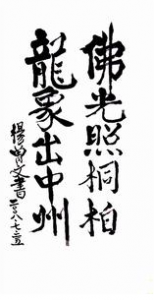 佛光照桐柏
龍象出中州
楊曾文書 二〇〇八·七·二五